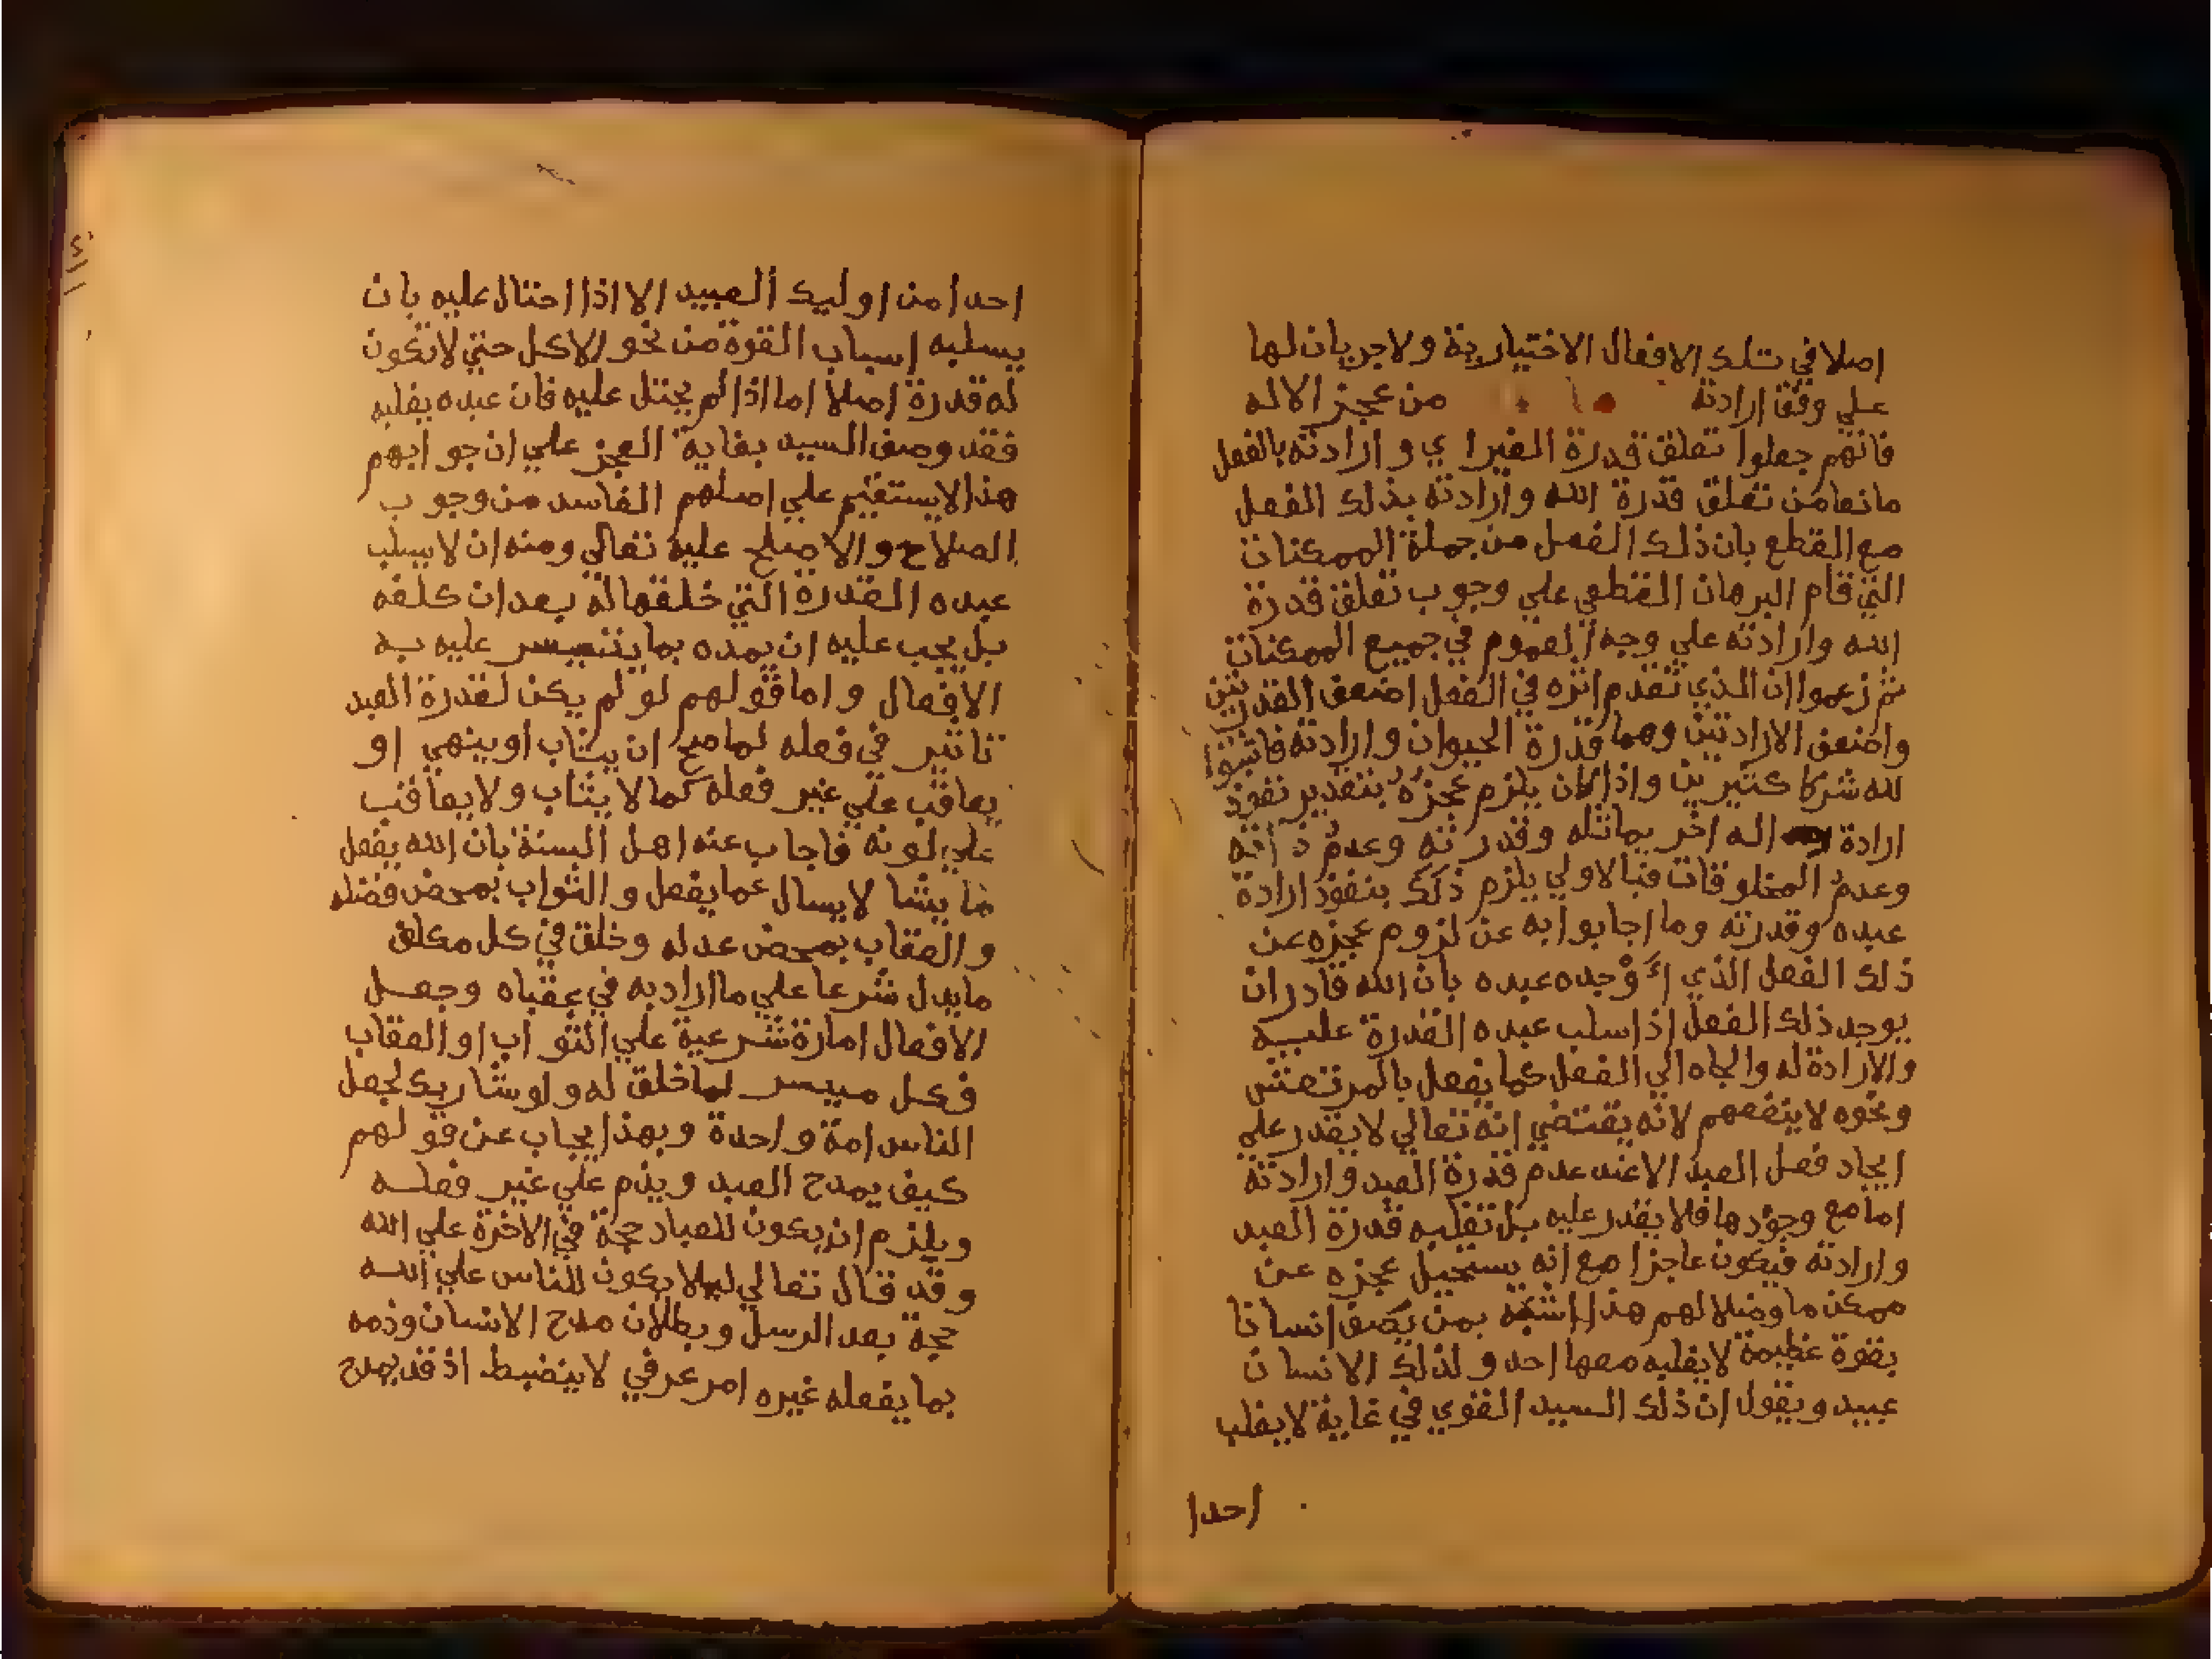 اصلا في تلك الافعال الاختيارية ولا جريان لها
علي وفق ارادته من عجز الاله
فانهم جعلوا تعلق قدرة الغير اي وارادته بالفعل
مانعا من تعلق قدرة الله وارادته بذلك الفعل
مع القطع بان ذلك الفعل من جملة الممكنات
التي قام البرهان القطعي علي وجوب تعلق قدرة
الله وارادته علي وجه العموم في جميع الممكنات
ثم زعموا ان الذي تقدم اثره في الفعل اضعف القدرتين
واضعف الارادتين وهما قدرة الحيوان وارادته فاثبتوا
لله شركا كثيرين واذا كان يلزم عجزه بتقدير نفوذ
ارادة اله اخر يماثله وقدرته وعدم ذاته
وعدم المخلوقات فبالاولي يلزم ذلك بنفوذ ارادة
عبده وقدرته وما اجابوا به عن لزوم عجزه عن
ذلك الفعل الذي اَوْجده عبده بان الله قادر ان
يوجد ذلك الفعل اذا سلب عبده القدرة عليه
والارادة له والجاه الي الفعل كما يفعل بالمرتعش
ونحوه لا ينفعهم لانه يقتضي انه تعالي لا يقدر علي
ايجاد فعل العبد الا عند عدم قدرة العبد وارادته
اما مع وجودها فلا يقدر عليه بل تغلبه قدرة العبد
وارادته فيكون عاجزا مع انه يستحيل عجزه عن
ممكن ما وضلالهم هذا اشبه بمن يصف انسانا
بقوة عظيمة لا يغلبه معها احد ولذلك الانسان
عبيد ويقول ان ذلك السيد القوي في غاية لا يغلب
احدا
احدا من اوليك العبيد الا اذا احتال عليه بان
يسلبه اسباب القوة من نحو الاكل حتي لا تكون
له قدرة اصلا اما اذا لم يحتل عليه فان عبده يغلبه
فقد وصف السيد بغاية العجز علي ان جوابهم
هذا لا يستقيم علي اصلهم الفاسد من وجوب
الصلاح والاصلح عليه تعالي ومنه ان لا يسلب
عبده القدرة التي خلقها له بعد ان كلفه
بل يجب عليه ان يمده بما يتيسر عليه به
الافعال واما قولهم لو لم يكن لقدرة العبد
تاثير في فعله لما صح ان يثاب او ينهي او
يعاقب علي غير فعله كما لا يثاب ولا يعاقب
علي لونه فاجاب عنه اهل السنة بان الله يفعل
ما يشا لا يسال عما يفعل والثواب بمحض فضله
والعقاب بمحض عدله وخلق في كل مكلف
ما يدل شرعا علي ما اراد به في عقباه وجعل
الافعال امارة شرعية علي الثواب او العقاب
فكل ميسر لما خلق له ولو شا ربك لجعل
الناس امة واحدة وبهذا يجاب عن قولهم
كيف يمدح العبد ويذم علي غير فعله
ويلزم ان يكون للعباد حجة في الاخرة علي الله
وقد قال تعالي ليلا يكون للناس علي الله
حجة بعد الرسل وبطلان مدح الانسان وذمه
بما يفعله غيره امر عرفي لا ينضبط اذ قد يمدح